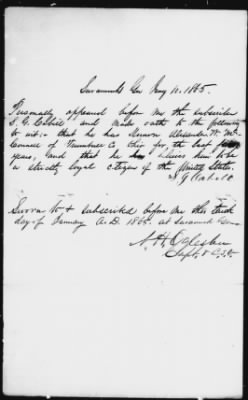 Savannah Geo Jany 10. 1865.
Personally appeared before me the subscriber
S. G. Cabell and made oath to the following
to wit:- that he has known Alexander W. Mc-
Connell of Trumbull Co Ohio for the last
years, and that he knows him to be
a strictly loyal citizen of the United States.
S G Cabell
Sworn to & subscribed before me this
day of January A.D. 1865. at Savannah Geo
Capt.